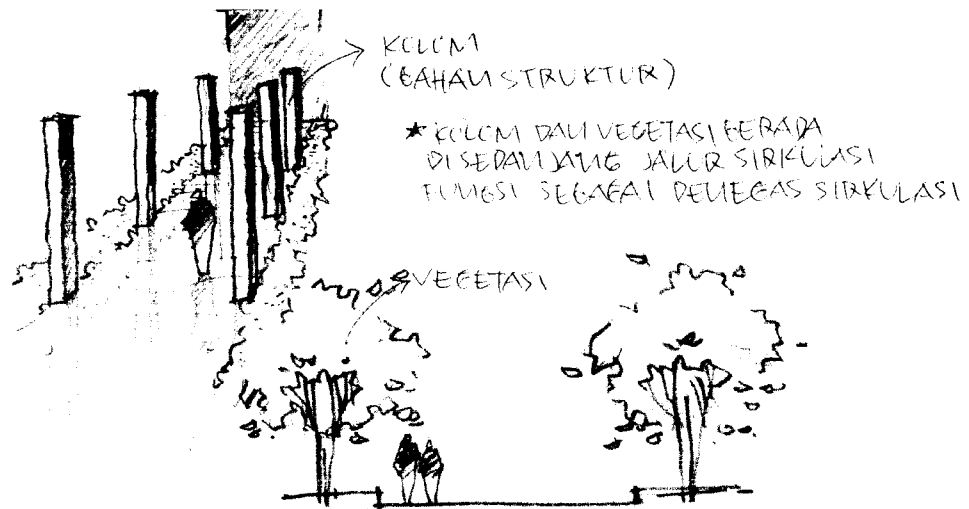 KOLOM
(BAHAN STRUKTUR)
★ KOLOM DAN VEGETASI BERADA
DISEPANJANG JALUR SIRKULASI
FUNGSI SEBAGAI PENEGAS SIRKULASI
VEGETASI